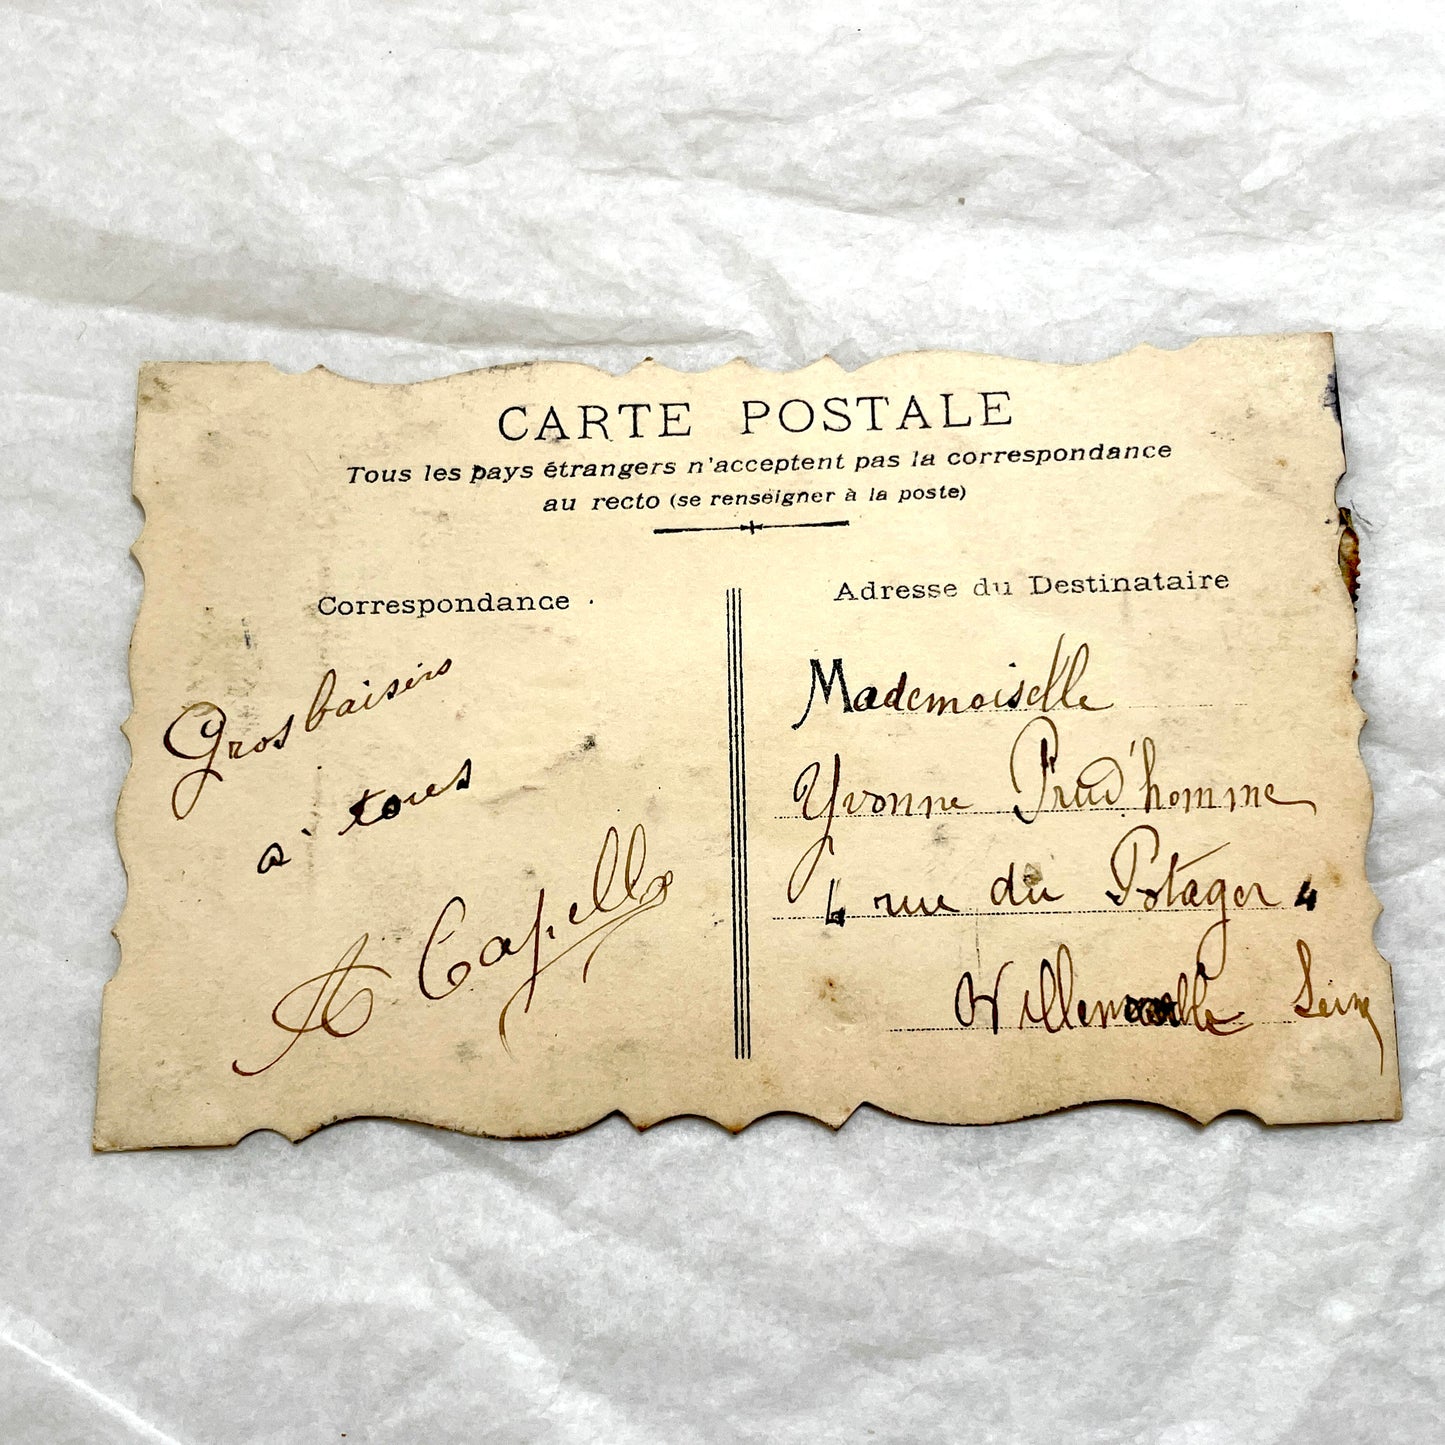 CARTE POSTALE
Tous les pays étrangers n'acceptent pas la correspondance
au recto (se renseigner à la poste)
Correspondance
Gros baisers
à tous
A Capelle
Adresse du Destinataire
Mademoiselle
Yvonne Prud'homme
4 rue du Potager 4
Seine